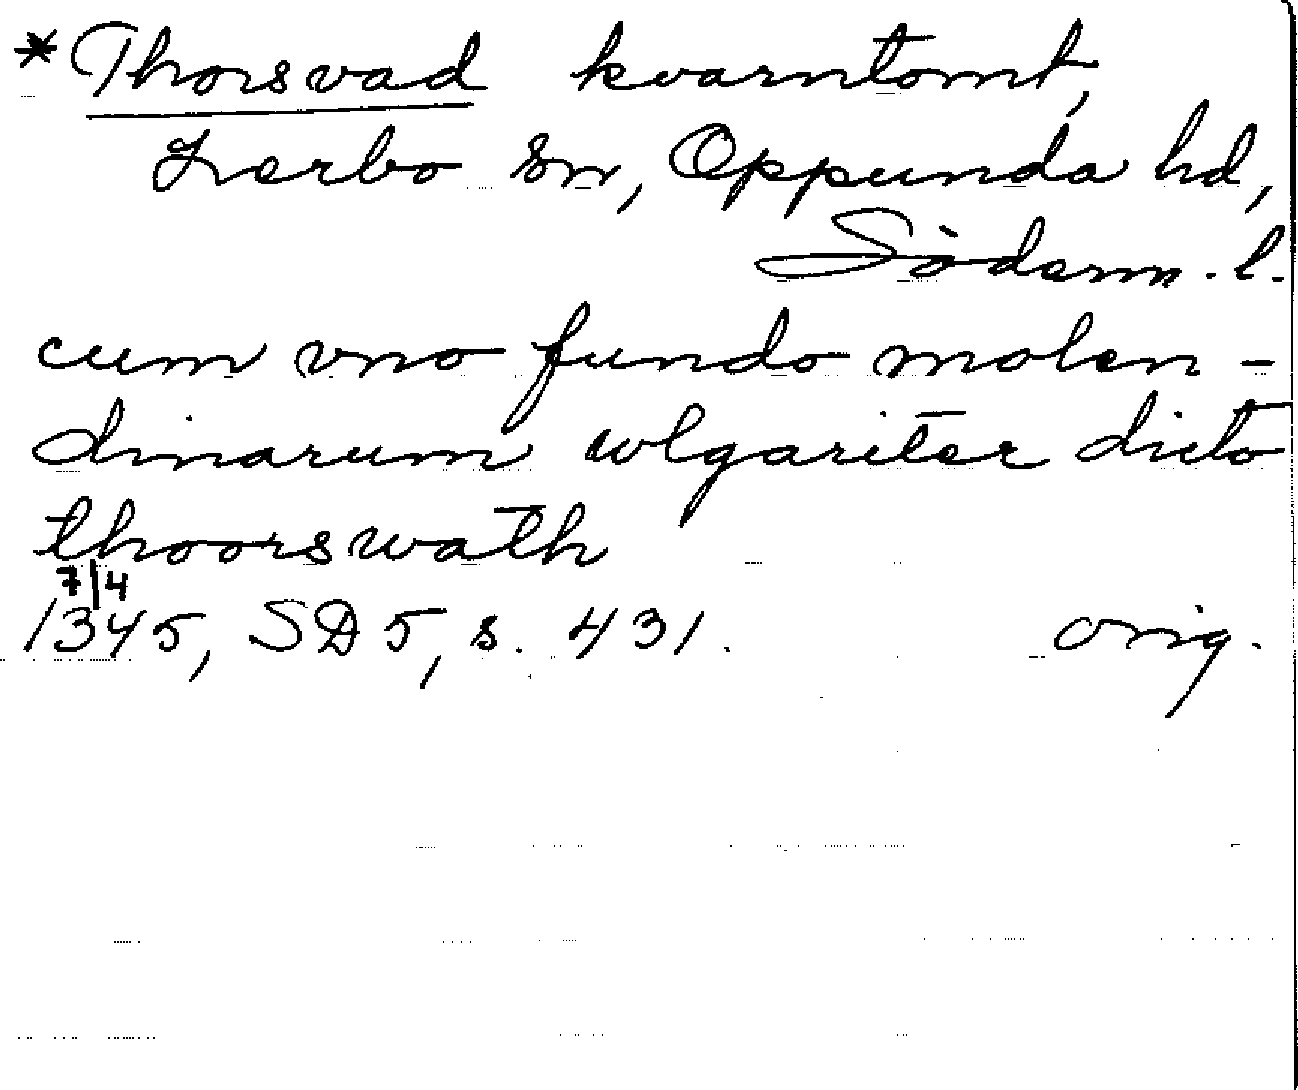 *Thorsvad kvarntomt,
Lerbo sn, Oppunda hd,
Söderm. l.
cum vno fundo molen-
dinarum wlgariter dicto
thoorswath
7/4
1345, SD 5, s. 431. orig.